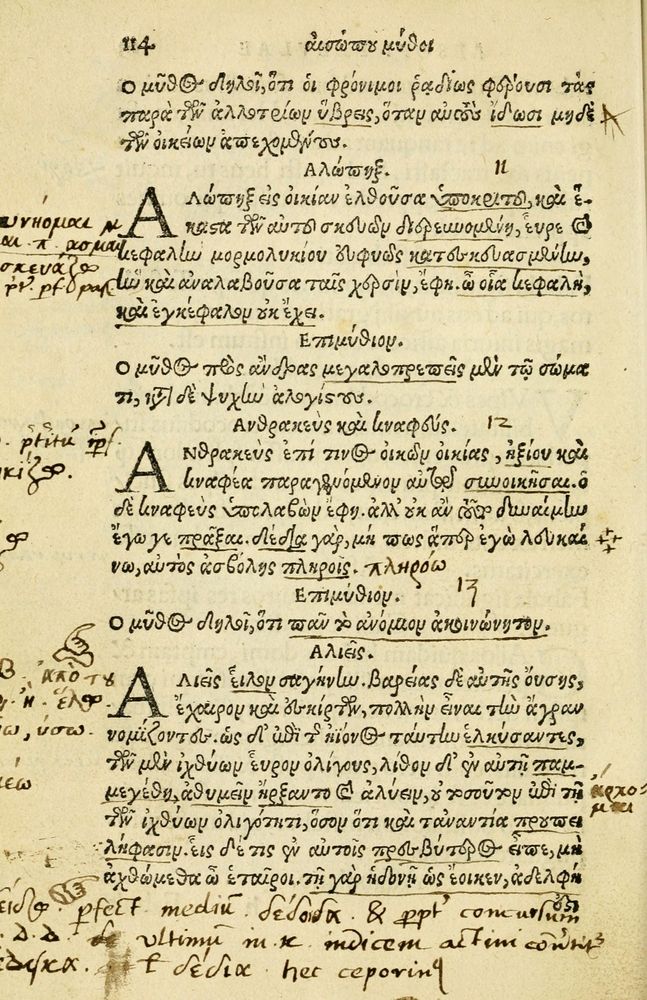 114 αἰσώπου μύθοι
Ο μῦθος δηλοῖ, ὅτι οἱ φρόνιμοι ῥᾳδίως φέρουσι τὰς
παρὰ τῶν ἀλλοτρίων ὕβρεις, ὅταν αὐτοὺς ἴδωσι μηδὲ
τῶν οἰκείων ἀπεχομένους.
Αλώπηξ. 11
ΑΛώπηξ εἰς οἰκίαν ἐλθοῦσα ὑποκριτοῦ, καὶ ἕ-
καστα τῶν αὐτοῦ σκευῶν διερευνομένη, εὗρε καὶ
κεφαλὴν μορμολυκίου εὐφυῶς κατεσκευασμένην,
ἣν καὶ ἀναλαβοῦσα ταῖς χερσὶν, ἔφη. ὦ οἵα κεφαλὴ,
καὶ ἐγκέφαλον οὐκ ἔχει.
Επιμύθιον.
Ο μῦθος πρὸς ἄνδρας μεγαλοπρεπεῖς μὲν τῷ σώμα
τι, κατὰ δὲ ψυχὴν ἀλογίστους.
Ανθρακεὺς καὶ κναφεύς. 12
ΑΝθρακεὺς ἐπί τινος οἰκῶν οἰκίας, ἠξίου καὶ
κναφέα παραγενόμενον αὐτῷ συνοικῆσαι. ὁ
δὲ κναφεὺς ὑπολαβὼν ἔφη. ἀλλ' οὐκ ἂν τοῦτο δυναίμην
ἔγωγε πρᾶξαι. δέδια γὰρ, μή πως ἅπερ ἐγὼ λουκαί
νω, αὐτὸς ἀσβόλης πληροῖς. πληρόω
Επιμύθιον. 13
Ο μῦθος δηλοῖ, ὅτι πᾶν τὸ ἀνόμοιον ἀκοινώνητον.
Αλιεῖς.
ΑΛιεῖς εἷλκον σαγήνην. βαρείας δὲ αὐτῆς οὔσης,
ἔχαιρον καὶ ἐσκίρτων, πολλὴν εἶναι τὴν ἄγραν
νομίζοντες. ὡς δ' ἐπὶ τῆς ἠιόνος ταύτην ἑλκύσαντες,
τῶν μὲν ἰχθύων εὗρον ὀλίγους, λίθον δ' ἐν αὐτῇ παμ-
μεγέθη, ἀθυμεῖν ἤρξαντο καὶ ἀλύειν, οὐ τοσοῦτον ἐπὶ τῇ
τῶν ἰχθύων ὀλιγότητι, ὅσον ὅτι καὶ τἀναντία προυπει
λήφασιν. εἷς δέ τις ἐν αὐτοῖς πρεσβύτερος εἶπε, μὴ
ἀχθώμεθα ὦ ἑταῖροι. τῇ γὰρ ἡδονῇ ὡς ἔοικεν, ἀδελφή
perfect medium. δέδοιδα. &
ultimum in κ indicem activi
δέδια hec ceporinus